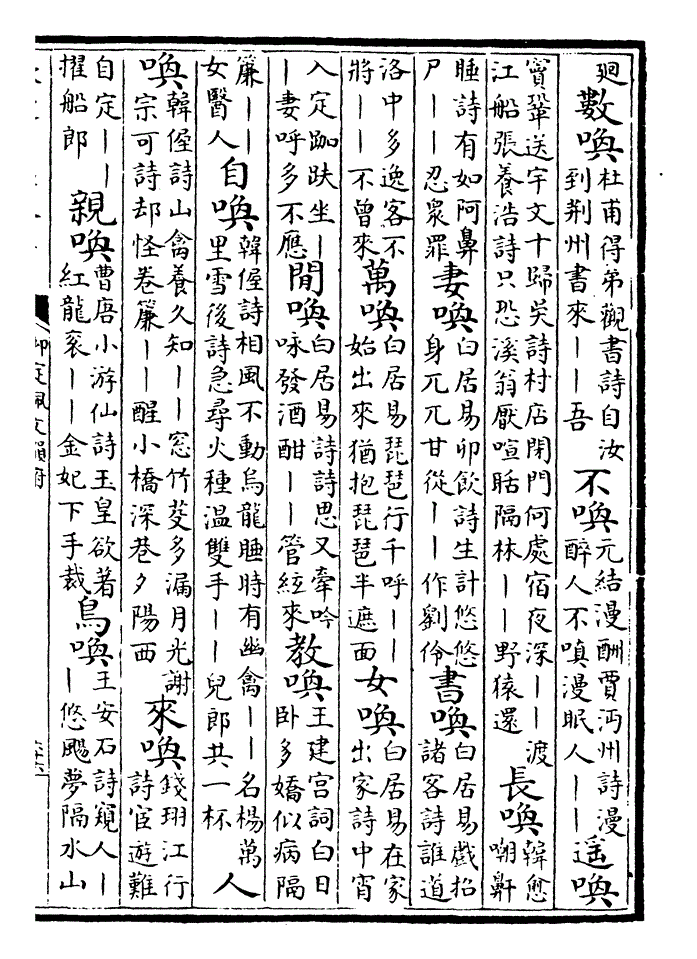 迴數喚杜甫得弟觀書詩自汝到荆州書來｜｜吾不喚元結漫酬賈沔州詩漫醉人不嗔漫眠人｜｜遥喚
竇鞏送宇文十歸吳詩村店閉門何處宿夜深｜｜渡江船張養浩詩只恐溪翁厭喧聒隔林｜｜野猿還長喚韓愈嘲鼾
睡詩有如阿鼻尸｜｜忍衆罪妻喚白居易卯飲詩生計悠悠身兀兀甘從｜｜作劉伶書喚白居易戲招諸客詩誰道
洛中多逸客不將｜｜不曾來萬喚白居易琵琶行千呼｜｜始出來猶抱琵琶半遮面女喚白居易在家出家詩中宵
入定跏趺坐｜｜妻呼多不應閒喚白居易詩詩思又牽吟咏發酒酣｜｜管絃來教喚王建宫詞白日卧多嬌似病隔
簾｜｜女醫人自喚韓偓詩相風不動烏龍睡時有幽禽｜｜名楊萬里雪後詩急尋火種温雙手｜｜兒郎共一杯人
喚韓偓詩山禽養久知｜｜窓竹芟多漏月光謝宗可詩却怪卷簾｜｜醒小橋深巷夕陽西來喚錢珝江行詩宦遊難
自定｜｜擢船郎親喚曹唐小游仙詩玉皇欲著紅龍衮｜｜金妃下手裁鳥喚王安石詩窺人｜｜悠颺夢隔水山